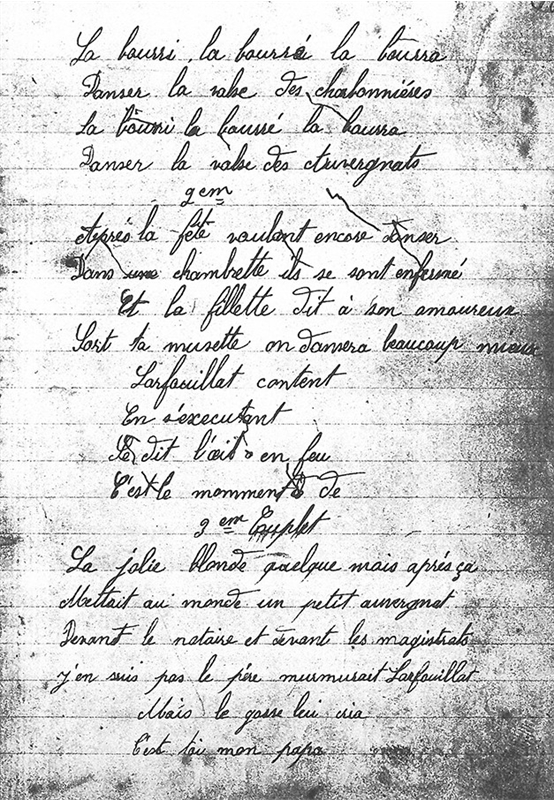 La bourri, la bourré la bourra
Danser la valse des charbonniéres
La bourri la bourré la bourra
Danser la valse des Auvergnats
2em
Aprés la fête voulant encore danser
Dans une chambrette ils se sont enfermé
Et la fillette dit à son amoureux
Sort ta musette on dansera beaucoup mieux
Larfouillat content
En s'executant
Lé dit l'œil en feu
C'est le momment de
3em Couplet
La jolie blonde quelque mais aprés ça
Mettait au monde un petit auvergnat
Devant le notaire et devant les magistrats
J'en suis pas le pére murmurait Larfouillat
Mais le gosse lui cria
C'est toi mon papa